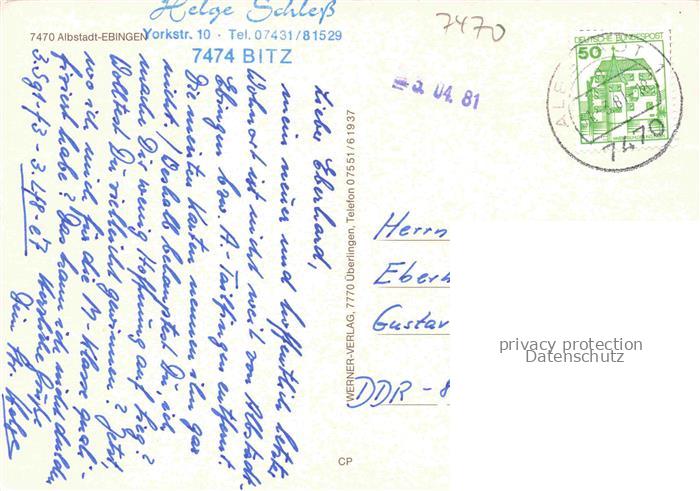 Helge Schleß
Yorkstr. 10 · Tel. 07431/81529
7474 BITZ
7470 Albstadt-EBINGEN
7470
-3. 04. 81
DEUTSCHE BUNDESPOST
50
7470
Lieber Eberhard,
mein neuer und hoffentlich letzter
Wohnort ist nicht weit von Albstadt-
Ebingen bzw. A.-Tailfingen entfernt.
Die meisten Karten nennen ihn gar
nicht. Deshalb behauptest Du, ich
mache Dir wenig Hoffnung auf Sieg?
Wolltest Du vielleicht gewinnen? Jetzt,
wo ich mich für die M-Klasse quali-
fiziert habe? Das kann ich nicht dulden
3.Sg1-f3 - 3.4f8-e7 Herzliche Grüße
Dein Helge
WERNER-VERLAG, 7770 Überlingen, Telefon 07551/61937
Herrn
Eberh
Gustav
DDR - 8
privacy protection
Datenschutz
CP